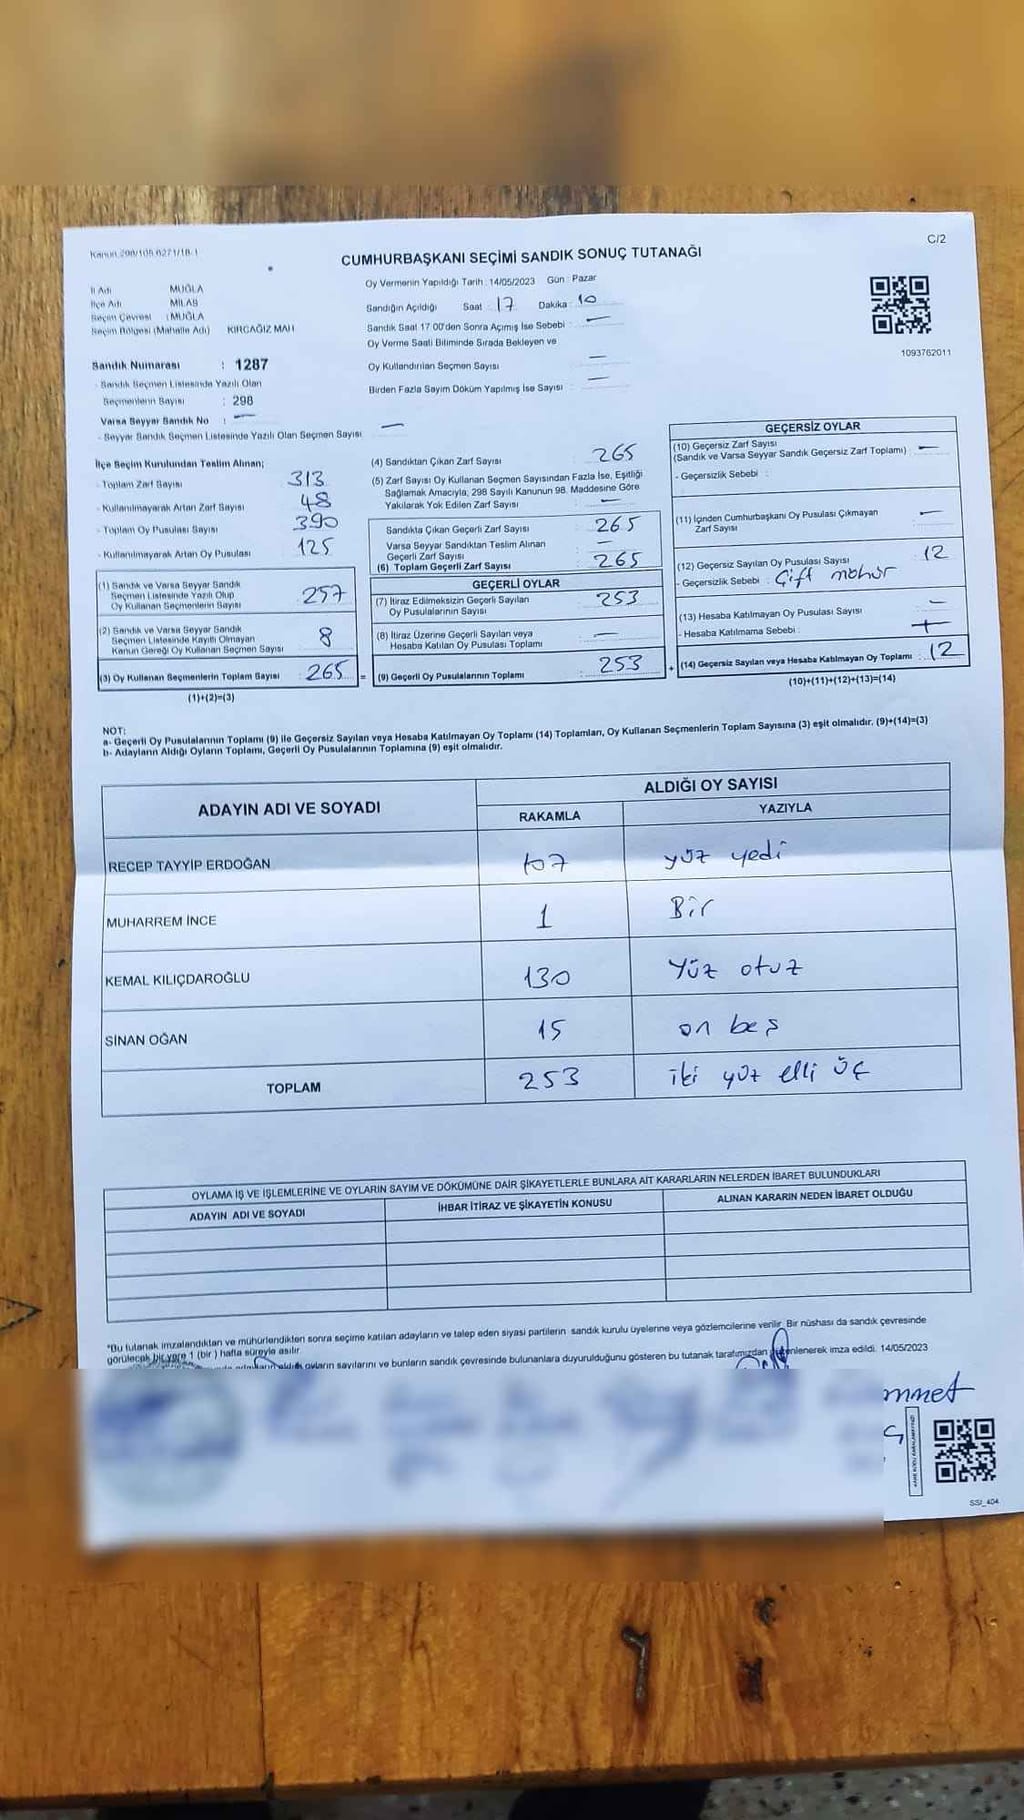 Kanun 298/105.6271/18-1
C/2
CUMHURBAŞKANI SEÇİMİ SANDIK SONUÇ TUTANAĞI
İl Adı MUĞLA
İlçe Adı MİLAS
Seçim Çevresi :MUĞLA
Seçim Bölgesi (Mahalle Adı) KIRCAĞIZ MAH
Sandık Numarası : 1287
- Sandık Seçmen Listesinde Yazılı Olan
Seçmenlerin Sayısı : 298
Varsa Seyyar Sandık No : —
- Seyyar Sandık Seçmen Listesinde Yazılı Olan Seçmen Sayısı —
Oy Vermenin Yapıldığı Tarih : 14/05/2023 Gün : Pazar
Sandığın Açıldığı Saat : 17 Dakika : 10
Sandık Saat 17 00'den Sonra Açımış İse Sebebi : —
Oy Verme Saati Bitiminde Sırada Bekleyen ve
Oy Kullandırılan Seçmen Sayısı —
Birden Fazla Sayım Döküm Yapılmış İse Sayısı —
1093762011
İlçe Seçim Kurulundan Teslim Alınan;
- Toplam Zarf Sayısı 313
- Kullanılmayarak Artan Zarf Sayısı 48
- Toplam Oy Pusulası Sayısı 390
- Kullanılmayarak Artan Oy Pusulası 125
(1) Sandık ve Varsa Seyyar Sandık
Seçmen Listesinde Yazılı Olup
Oy Kullanan Seçmenlerin Sayısı 257
(2) Sandık ve Varsa Seyyar Sandık
Seçmen Listesinde Kayıtlı Olmayan
Kanun Gereği Oy Kullanan Seçmen Sayısı 8
(3) Oy Kullanan Seçmenlerin Toplam Sayısı : 265 =
(1)+(2)=(3)
(4) Sandıktan Çıkan Zarf Sayısı : 265
(5) Zarf Sayısı Oy Kullanan Seçmen Sayısından Fazla İse, Eşitliği
Sağlamak Amacıyla, 298 Sayılı Kanunun 98. Maddesine Göre
Yakılarak Yok Edilen Zarf Sayısı : —
Sandıkta Çıkan Geçerli Zarf Sayısı : 265
Varsa Seyyar Sandıktan Teslim Alınan
Geçerli Zarf Sayısı —
(6) Toplam Geçerli Zarf Sayısı : 265
GEÇERLİ OYLAR
(7) İtiraz Edilmeksizin Geçerli Sayılan
Oy Pusulalarının Sayısı : 253
(8) İtiraz Üzerine Geçerli Sayılan veya
Hesaba Katılan Oy Pusulası Toplamı : —
(9) Geçerli Oy Pusulalarının Toplamı : 253 +
GEÇERSİZ OYLAR
(10) Geçersiz Zarf Sayısı
(Sandık ve Varsa Seyyar Sandık Geçersiz Zarf Toplamı) : —
- Geçersizlik Sebebi :
(11) İçinden Cumhurbaşkanı Oy Pusulası Çıkmayan
Zarf Sayısı : —
(12) Geçersiz Sayılan Oy Pusulası Sayısı : 12
- Geçersizlik Sebebi : Çift mühür
(13) Hesaba Katılmayan Oy Pusulası Sayısı : —
- Hesaba Katılmama Sebebi :
(14) Geçersiz Sayılan veya Hesaba Katılmayan Oy Toplamı : 12
(10)+(11)+(12)+(13)=(14)
NOT:
a- Geçerli Oy Pusulalarının Toplamı (9) ile Geçersiz Sayılan veya Hesaba Katılmayan Oy Toplamı (14) Toplamları, Oy Kullanan Seçmenlerin Toplam Sayısına (3) eşit olmalıdır. (9)+(14)=(3)
b- Adayların Aldığı Oyların Toplamı, Geçerli Oy Pusulalarının Toplamına (9) eşit olmalıdır.
ADAYIN ADI VE SOYADI ALDIĞI OY SAYISI
RAKAMLA YAZIYLA
RECEP TAYYİP ERDOĞAN 107 yüz yedi
MUHARREM İNCE 1 Bir
KEMAL KILIÇDAROĞLU 130 Yüz otuz
SİNAN OĞAN 15 on beş
TOPLAM 253 iki yüz elli üç
OYLAMA İŞ VE İŞLEMLERİNE VE OYLARIN SAYIM VE DÖKÜMÜNE DAİR ŞİKAYETLERLE BUNLARA AİT KARARLARIN NELERDEN İBARET BULUNDUKLARI
ADAYIN ADI VE SOYADI İHBAR İTİRAZ VE ŞİKAYETİN KONUSU ALINAN KARARIN NEDEN İBARET OLDUĞU
"Bu tutanak imzalandıktan ve mühürlendikten sonra seçime katılan adayların ve talep eden siyasi partilerin sandık kurulu üyelerine veya gözlemcilerine verilir. Bir nüshası da sandık çevresinde
görülecek bir yere 1 (bir ) hafta süreyle asılır.
aldığı oyların sayılarını ve bunların sandık çevresinde bulunanlara duyurulduğunu gösteren bu tutanak tarafımızdan düzenlenerek imza edildi. 14/05/2023
SSI_404